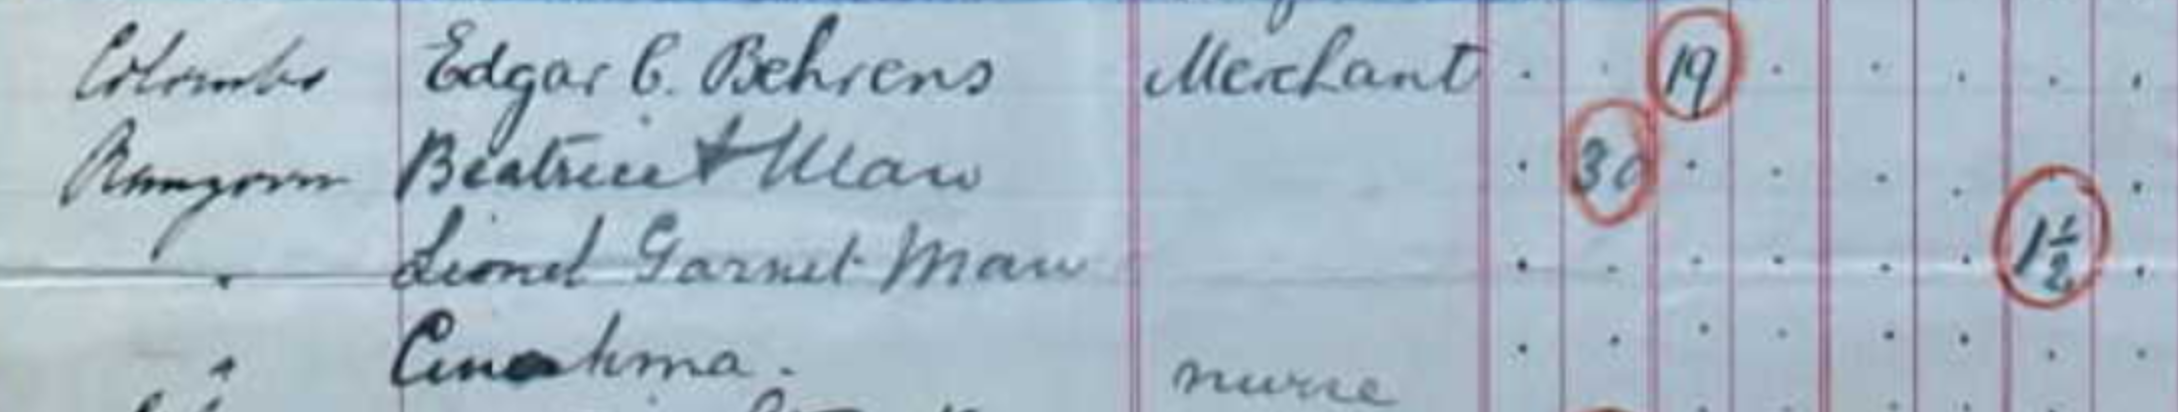 Colombo Edgar C. Behrens Merchant . . 19 . . . . .
Rangoon Beatrice A Maw . 30 . . . . .
" Lionel Garnet Maw . . . . . . 1½ .
" nurse . . . . . . . .